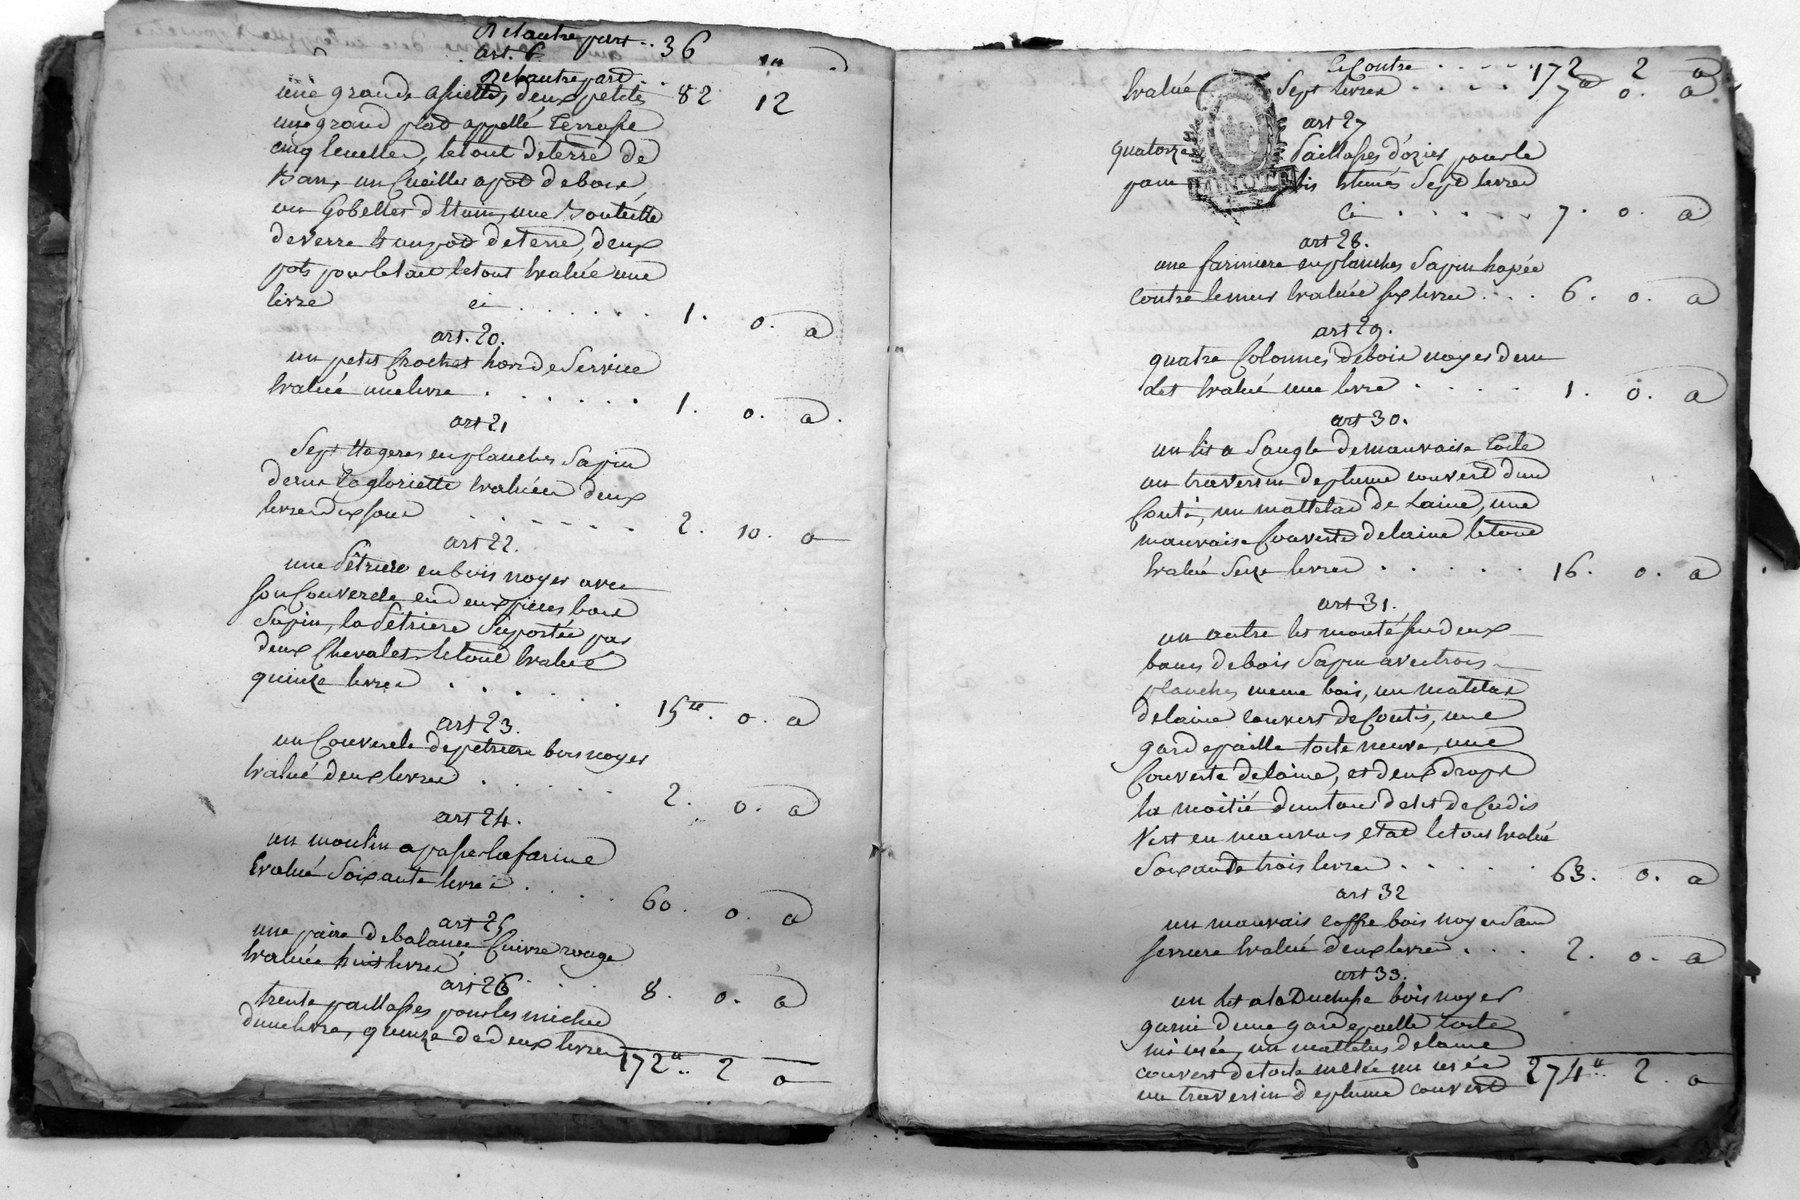 De l'autre part .. 36 10 a
art. 6
De l'autre part .. 82 12
une grande assiette, deux petites
une grand plat appellé Terrasse
cinq ecuelles, le tout de terre de
un Cueiller a pot de bois,
un Gobellet d'Etain, une Bouteille
de verre & un pot de terre, deux
pots pour le lait le tout Evalué une
livre ci . . . . . . 1. 0. a
art. 20.
un petit Crochet hors de Service
Evalué une livre . . . . . . 1. 0. a.
art 21
Sept Etageres en planches Sapin
dans la gloriette Evaluées deux
livres dix sous . . . . . . 2. 10. a
art 22.
une Pétriere en bois noyer avec
son Couvercle en deux pieces bois
Sapin, la Pétriere Suportée par
deux Chevalets le tout Evalué
quinze livres . . . . . . 15ll. 0. a
art 23.
un Couvercle de petriere bois noyer
Evalué deux livres . . . . . . 2. 0. a
art 24.
un moulin a passer la farine
Evalué Soixante livres . . . . 60. 0. a
art 25
une paire de balance Cuivre rouge
Evaluée huit livres
art 26 . . . 8. 0. a
trente paillasses pour les miches
d'une livre, quinze de deux livres
172ll .. 2 a
Ci Contre . . . . . 172 2 a
Evalué Sept livres . . . . . 7ll 0. a
art 27
quatorze Paillasses d'ozier pour le
pain bis Estimés Sept livres
Ci . . . . . . 7. 0. a
art 28.
une fariniere en planches Sapin
contre le mur Evaluée six livres . . . 6. 0. a
art 29.
quatre Colonnes de bois noyer d'un
lit Evalué une livre . . . . . 1. 0. a
art 30.
un lit a Sangle de mauvaise Toile
un traversin de plume couvert d'un
Couti, un mattelas de Laine, une
mauvaise Couverte de laine le tout
Evalué Seize livres . . . . . . 16. 0. a
art 31.
un autre lit monté sur deux
bancs de bois Sapin avec trois
planches meme bois, un matelas
de laine couvert de Coutis, une
gardepaille toile neuve, une
Couverte de laine, et deux draps
la moitié d'un tour de lit de Cadis
Vert en mauvais etat le tout Evalué
Soixante trois livres . . . . . 63. 0. a
art 32
un mauvais coffre bois noyer Sans
serrure Evalué deux livres . . . 2. 0. a
art 33.
un lit a la Duchesse bois noyer
garni d'une gardepaille toile
mi usée, un mattelas de laine
couvert de toile mi usée
un traversin de plume couvert
274ll .. 2. a